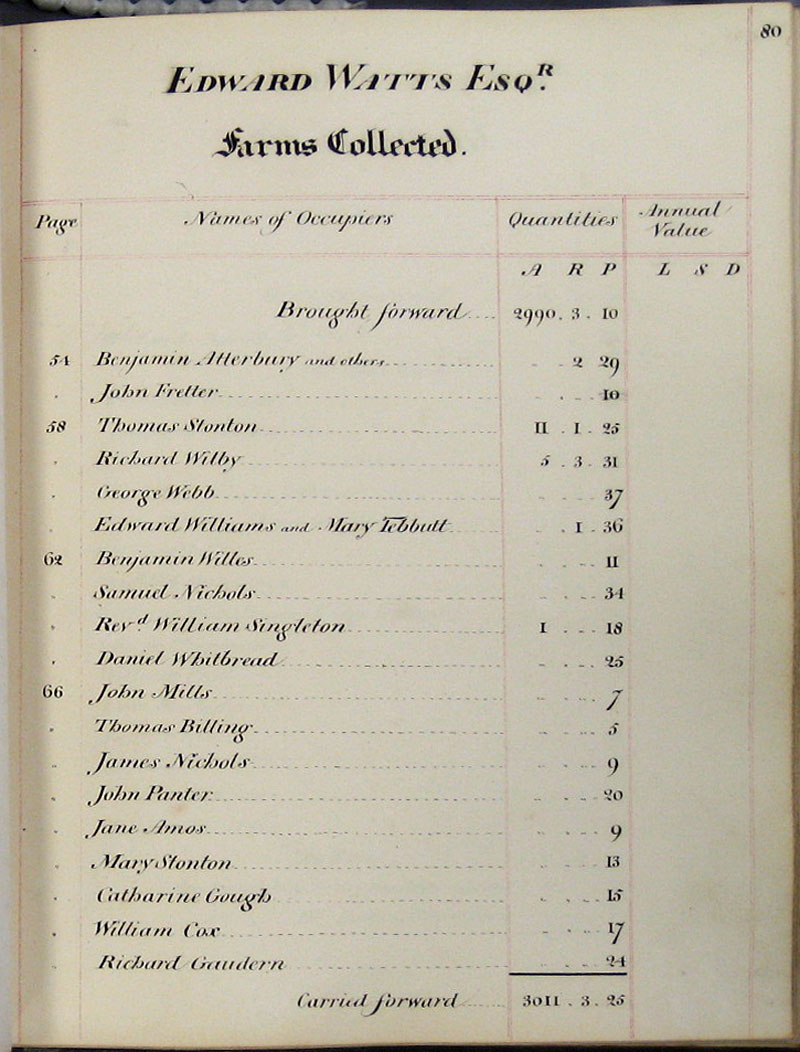 80
EDWARD WATTS ESQR.
Farms Collected.
Page Names of Occupiers Quantities Annual Value
A R P L S D
Brought forward 2990 . 3 . 10
54 Benjamin Atterbury and others 2 29
. John Fretter 10
58 Thomas Stonton 11 . 1 . 25
. Richard Wilby 5 . 3 . 31
. George Webb 37
. Edward Williams and Mary Tebbutt 1 . 36
62 Benjamin Willes 11
. Samuel Nichols 34
. Revd. William Singleton 1 18
. Daniel Whitbread 25
66 John Mills 7
. Thomas Billing 5
. James Nichols 9
. John Panter 20
. Jane Amos 9
. Mary Stonton 13
. Catharine Gough 15
. William Cox 17
. Richard Gaudern 24
Carried forward 3011 . 3 . 25